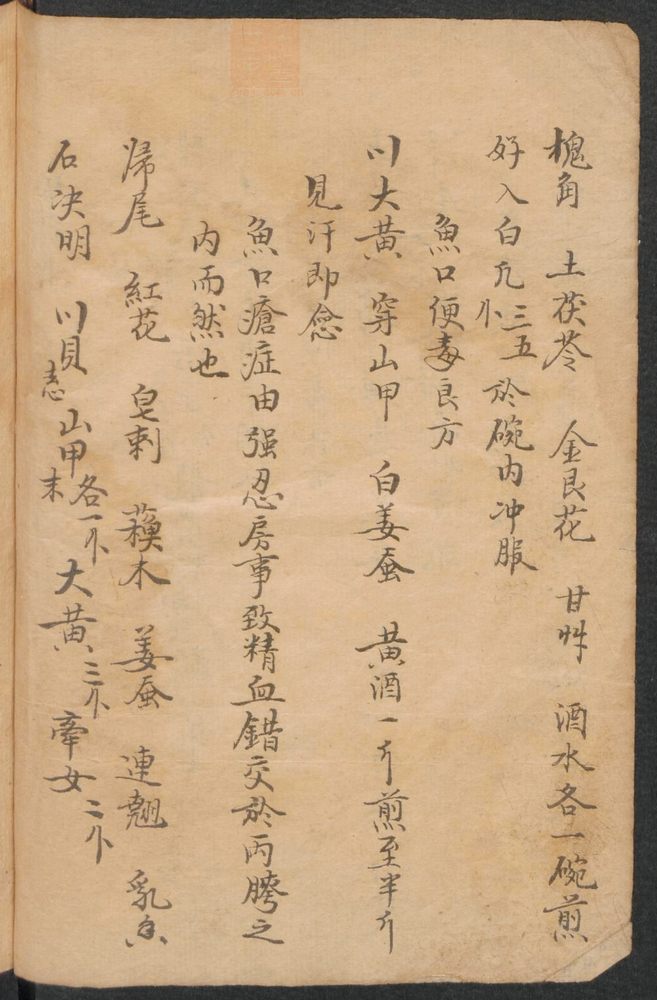 槐角 土茯苓 金艮花 甘艸 酒水各一碗煎
好入白凢三五卜於碗内冲服
魚口便毒良方
川大黄 穿山甲 白姜蚕 黄酒一斤煎至半斤
見汗即念
魚口瘡症由强忍房事致精血錯交於两胯之
内而然也
帰尾 紅花 皂刺 蘓木 姜蚕 連翹 乳香
石决明 川貝 山甲末各一卜 大黄三卜 牽女二卜